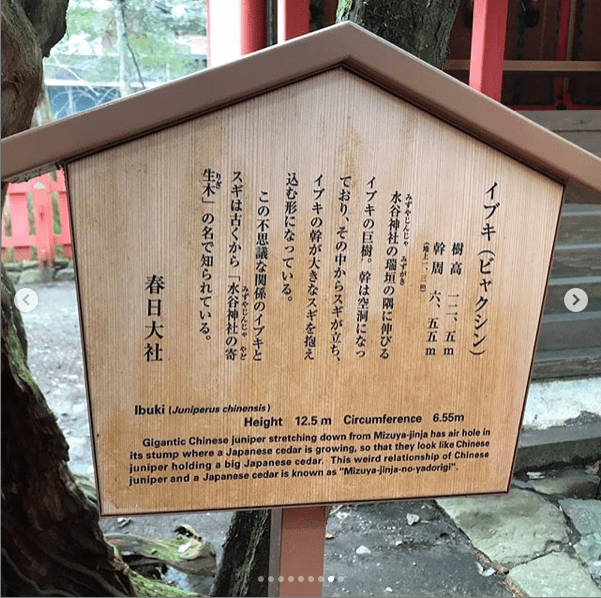 イブキ(ビャクシン)
樹高 一二、五m
幹周 六、五五m
(地上一、三m)
みずやじんじゃ みずがき
水谷神社の瑞垣の隅に伸びる
イブキの巨樹。幹は空洞になっ
ており、その中からスギが立ち、
イブキの幹が大きなスギを抱え
込む形になっている。
この不思議な関係のイブキと
みずやじんじゃ やど
スギは古くから「水谷神社の寄
りぎ
生木」の名で知られている。
春日大社
Ibuki (Juniperus chinensis)
Height 12.5 m Circumference 6.55m
Gigantic Chinese juniper stretching down from Mizuya-jinja has air hole in
its stump where a Japanese cedar is growing, so that they look like Chinese
juniper holding a big Japanese cedar. This weird relationship of Chinese
juniper and a Japanese cedar is known as "Mizuya-jinja-no-yadorigi".